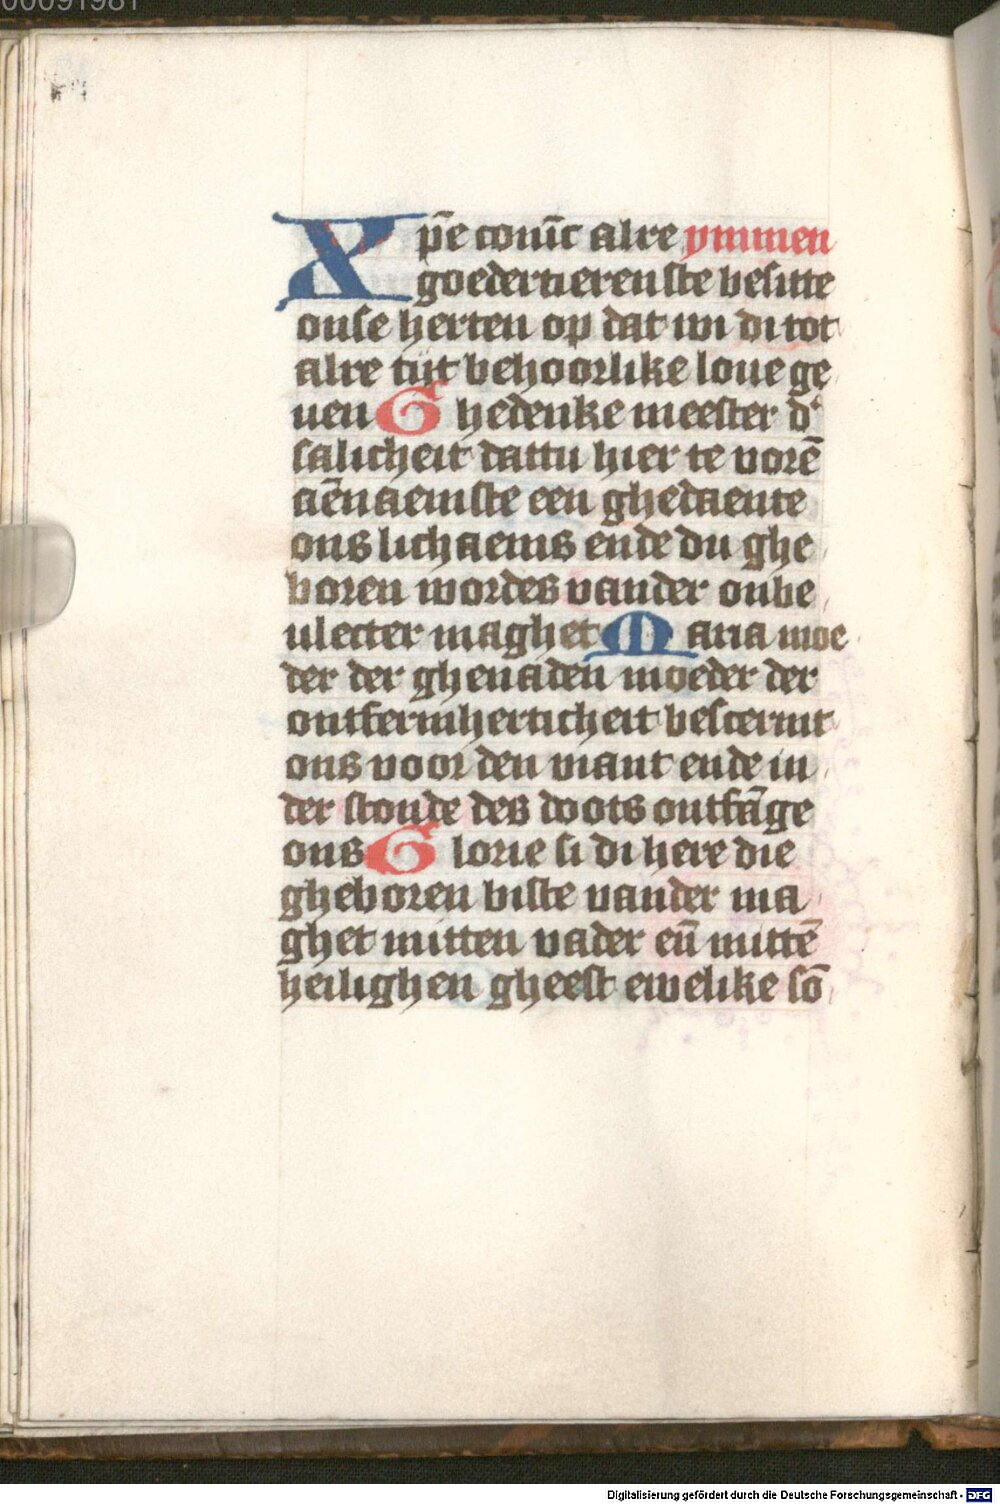 00091981
Xpē conīc alre ymmen
goedertierenste besitte
onse herten op dat wi di tot
alre tijt behoorlike loue ge
uen Ghedenke meester d'
salicheit dattu hier te vorē
aēnaemste een ghedaente
ons lichaems ende du ghe
boren wordes vander onbe
ulecter maghet Maria moe
der der ghenaden moeder der
ontfermherticheit bescermt
ons voor den viant ende in
der stonde des doots ontfāge
ons Glorie si di here die
gheboren biste vander ma
ghet mitten vader eñ mittē
heilighen gheest ewelike sō
Digitalisierung gefördert durch die Deutsche Forschungsgemeinschaft - DFG